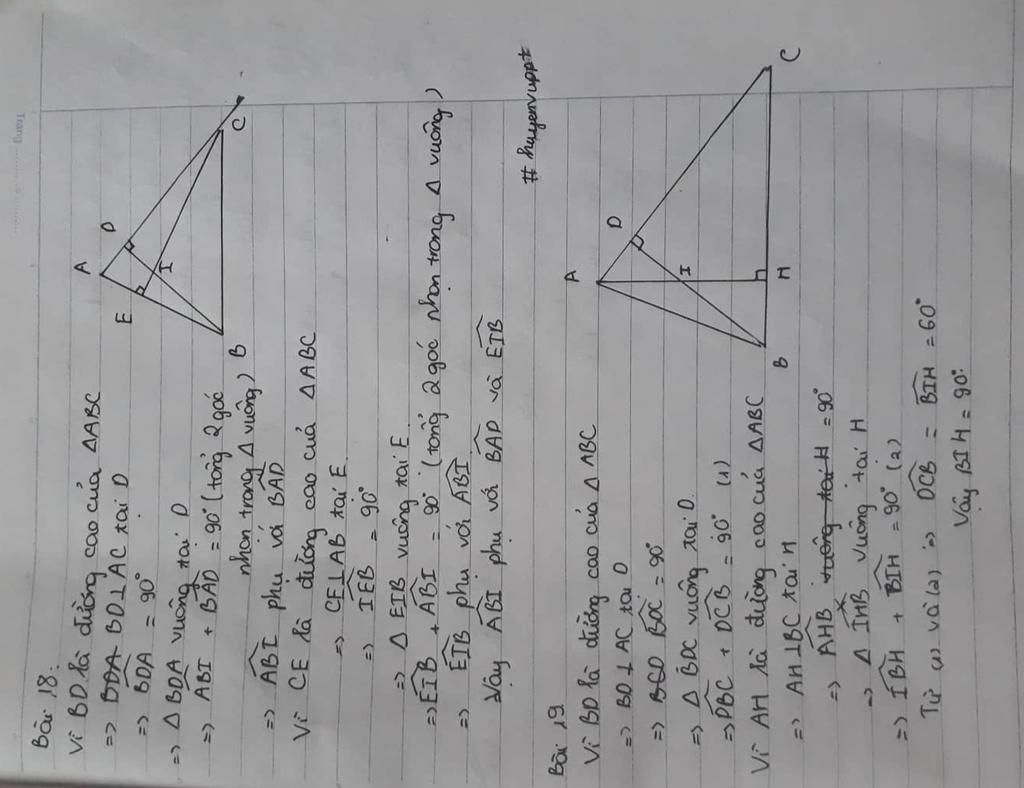 Trang
Bài 18:
Vì BD là đường cao của ΔABC
=> BDA BD⊥AC tại D
=> BDA = 90°
=> Δ BDA vuông tại D
=> ABI + BAD = 90° (tổng 2 góc
nhọn trong Δ vuông)
=> ABI phụ với BAD
Vì CE là đường cao của ΔABC
=> CE⊥AB tại E
=> IEB = 90°
=> Δ EIB vuông tại E
=> EIB + ABI = 90° (tổng 2 góc nhọn trong Δ vuông)
=> EIB phụ với ABI
Vậy ABI phụ với BAD và EIB
A
E
D
I
B
C
# huyenvuppt
Bài 19
Vì BD là đường cao của Δ ABC
=> BD ⊥ AC tại D
=> BCD BDC = 90°
=> Δ BDC vuông tại D
=> DBC + DCB = 90° (1)
Vì AH là đường cao của ΔABC
=> AH ⊥BC tại H
=> AHB vuông tại H = 90°
=> Δ IHB vuông tại H
=> IBH + BIH = 90° (2)
Từ (1) và (2) => DCB = BIH = 60°
Vậy BIH = 90°
A
D
I
B
H
C